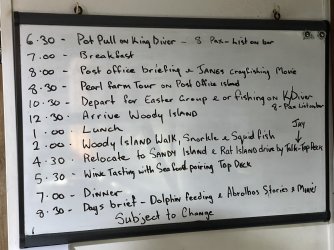 6.30 - Pot Pull on King Diver - 8 Pax - List on bar
7.00 - Breakfast
8.00 - Post office briefing & JANES crayfishing Movie
8.30 - Pearl farm Tour on Post office island
10.30 - Depart for Easter Group & or fishing on K/Diver
8 - Pax List on bar
12.30 Arrive Woody Island
1.00 - Lunch
JAY
2.00 - Woody Island Walk, Snorkle & Squid fish
4.30 - Relocate to SANDY Island & Rat Island drive by Talk - Top Deck
5.30 - Wine Tasting with Seafood pairing Top Deck
7.00 - Dinner
8.30 - Days brief - Dolphin feeding & Abrolhos Stories & Movies
Subject to Change